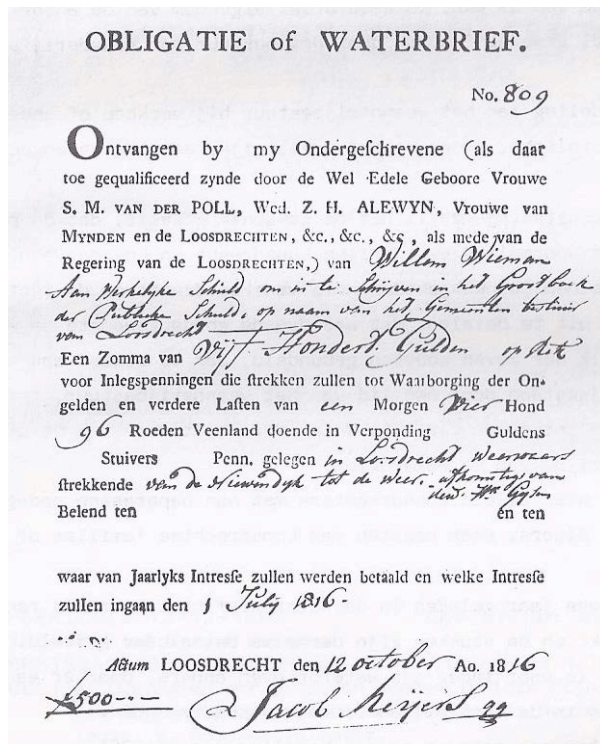 OBLIGATIE of WATERBRIEF.
No. 809
Ontvangen by my Ondergeſchrevene (als daar
toe gequalificeerd zynde door de Wel Edele Geboore Vrouwe
S. M. VAN DER POLL, Wed. Z. H. ALEWYN, Vrouwe van
MYNDEN en de LOOSDRECHTEN, &c., &c., &c, als mede van de
Regering van de LOOSDRECHTEN,) van Willem Wieman
Aan Werkelyke Schuld om in te Schryven in het Grootboek
der Publieke Schuld, op naam van het Gemeenten bestuur
van Loosdrecht
Een Zomma van Vyff Honderd Gulden
voor Inlegspenningen die ſtrekken zullen tot Waarborging der On-
gelden en verdere Laſten van een Morgen Vier Hond
96 Roeden Veenland doende in Verponding Guldens
Stuivers Penn, gelegen in Loosdrecht
ſtrekkende van de Nieuwendyk tot de Weer. afkomstig van
Belend ten en ten
waar van Jaarlyks Intreſſe zullen werden betaald en welke Intreſſe
zullen ingaan den 1 July 1816
Actum LOOSDRECHT den 12 october Ao. 1816
ƒ500.-- Jacob Meijers